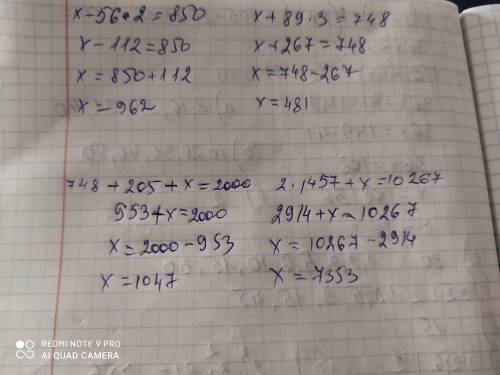 x-56·2=850
x-112=850
x=850+112
x=962
x+89·3=748
x+267=748
x=748-267
x=481
748+205+x=2000
953+x=2000
x=2000-953
x=1047
2·1457+x=10267
2914+x=10267
x=10267-2914
x=7353
REDMI NOTE 9 PRO
AI QUAD CAMERA